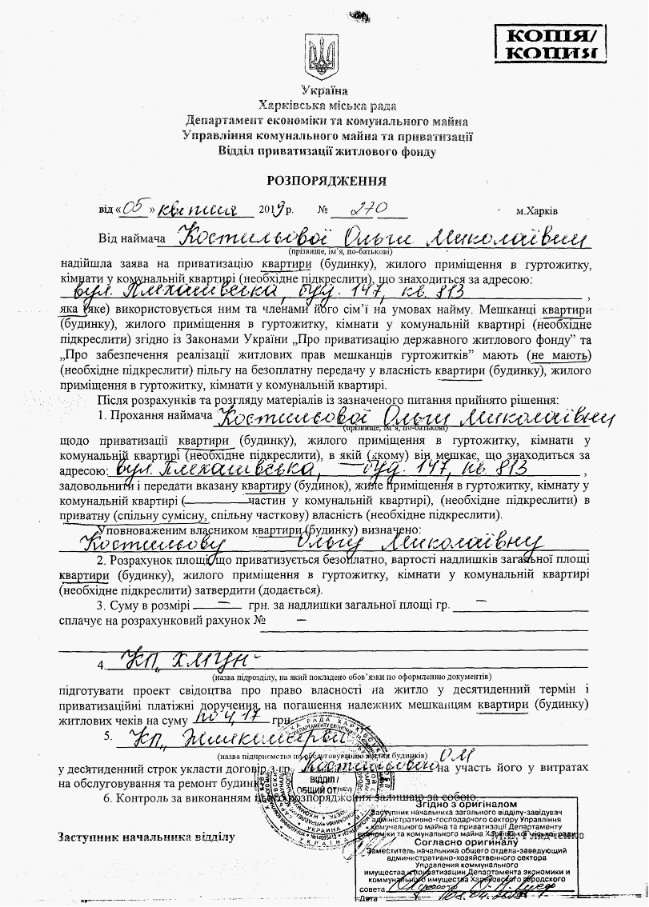 КОПІЯ/
КОПИЯ
Україна
Харківська міська рада
Департамент економіки та комунального майна
Управління комунального майна та приватизації
Відділ приватизації житлового фонду
РОЗПОРЯДЖЕННЯ
від «05» квітня 2019 р. № 270 м.Харків
Від наймача Костильової Ольги Миколаївни
(прізвище, ім'я, по-батькові)
надійшла заява на приватизацію квартири (будинку), жилого приміщення в гуртожитку,
кімнати у комунальній квартирі (необхідне підкреслити), що знаходиться за адресою:
вул. Плеханівська, буд. 147, кв. 813 ,
яка (яке) використовується ним та членами його сім'ї на умовах найму. Мешканці квартири
(будинку), жилого приміщення в гуртожитку, кімнати у комунальній квартирі (необхідне
підкреслити) згідно із Законами України „Про приватизацію державного житлового фонду” та
„Про забезпечення реалізації житлових прав мешканців гуртожитків” мають (не мають)
(необхідне підкреслити) пільгу на безоплатну передачу у власність квартири (будинку), жилого
приміщення в гуртожитку, кімнати у комунальній квартирі.
Після розрахунків та розгляду матеріалів із зазначеного питання прийнято рішення:
1. Прохання наймача Костильової Ольги Миколаївни
(прізвище, ім'я, по-батькові)
щодо приватизації квартири (будинку), жилого приміщення в гуртожитку, кімнати у
комунальній квартирі (необхідне підкреслити), в якій (якому) він мешкає, що знаходиться за
адресою: вул. Плеханівська, буд. 147, кв. 813 ,
задовольнити і передати вказану квартиру (будинок), жиле приміщення в гуртожитку, кімнату у
комунальній квартирі (— частин у комунальній квартирі), (необхідне підкреслити) в
приватну (спільну сумісну, спільну часткову) власність (необхідне підкреслити).
Уповноваженим власником квартири (будинку) визначено:
Костильову Ольгу Миколаївну
2. Розрахунок площі, що приватизується безоплатно, вартості надлишків загальної площі
квартири (будинку), жилого приміщення в гуртожитку, кімнати у комунальній квартирі
(необхідне підкреслити) затвердити (додається).
3. Суму в розмірі — грн. за надлишки загальної площі гр. —
сплачує на розрахунковий рахунок № —
4. КП „ХМЦН”
(назва підрозділу, на який покладено обов'язки по оформленню документів)
підготувати проект свідоцтва про право власності на житло у десятиденний термін і
приватизаційні платіжні доручення на погашення належних мешканцям квартири (будинку)
житлових чеків на суму по 4,17 грн.
5. КП „Жилкомсервіс”
(назва підприємства по обслуговуванню жилих будинків)
у десятиденний строк укласти договір з гр. Костильовою ОМ на участь його у витратах
на обслуговування та ремонт будинку
6. Контроль за виконанням цього розпорядження залишаю за собою.
ВІДДІЛ
УКРАЇНА
Заступник начальника відділу
Згідно з оригіналом
Заступник начальника загального відділу-завідувач
адміністративно-господарчого сектору Управління
комунального майна та приватизації Департаменту
економіки та комунального майна Харківської міської ради
Согласно оригиналу
Заместитель начальника общего отдела-заведующий
административно-хозяйственного сектора
Управления коммунального
имущества и приватизации Департамента экономики и
коммунального имущества Харьковского городского
совета
Дата